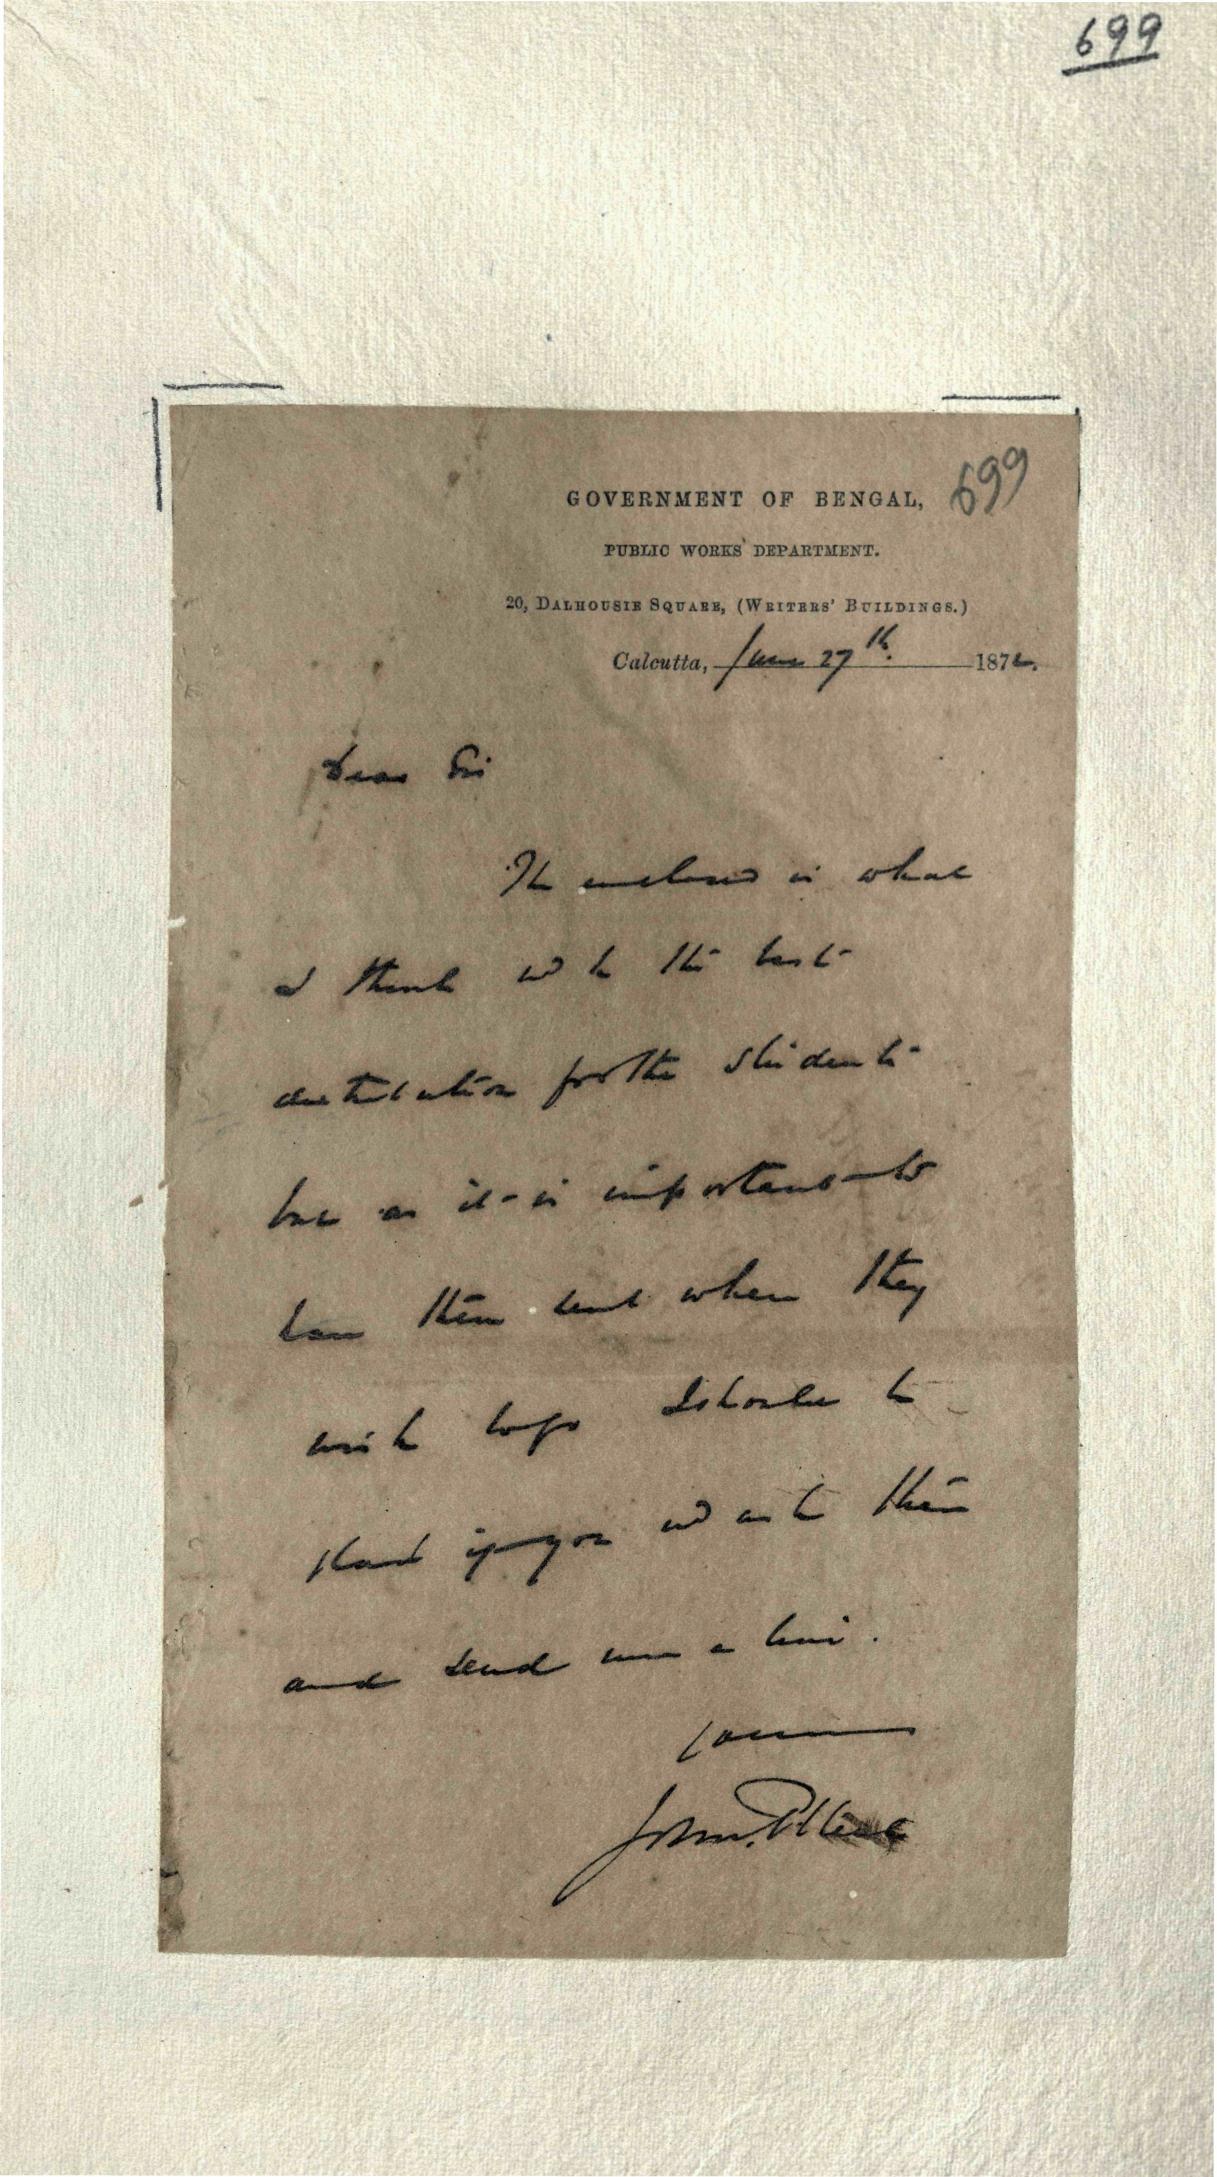 699
699
GOVERNMENT OF BENGAL,
PUBLIC WORKS DEPARTMENT.
20, DALHOUSIE SQUARE, (WRITERS' BUILDINGS.)
Calcutta, June 27th. 1872.
Dear Sir
The enclosed is what
I think wd be the best
distribution for the students
but as it is important to
have them sent where they
wish to go I should be
glad if you wd ask them
and send me a line.
Yours
John